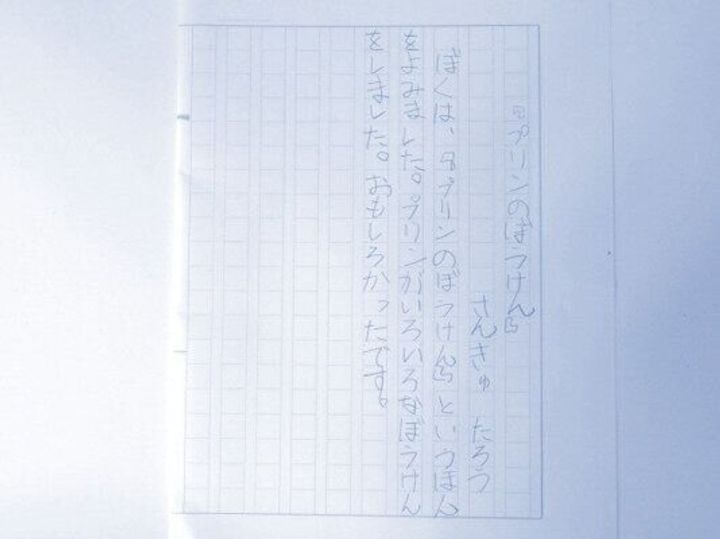 『プリンのぼうけん』
さんきゅ　たろう
ぼくは、『プリンのぼうけん』というほん
をよみました。プリンがいろいろなぼうけん
をしました。おもしろかったです。